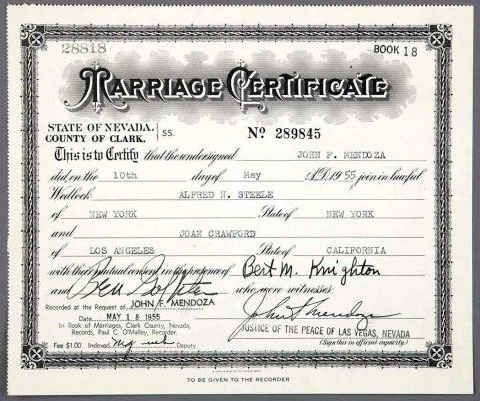 28818
BOOK 18
MARRIAGE CERTIFICATE
STATE OF NEVADA,
COUNTY OF CLARK. } ss.
No 289845
This is to Certify that the undersigned JOHN F. MENDOZA
did on the 10th day of May A.D. 1955 join in lawful
Wedlock ALFRED N. STEELE
of NEW YORK State of NEW YORK
and JOAN CRAWFORD
of LOS ANGELES State of CALIFORNIA
with their mutual consent in the presence of Bert M. Knighton
and who were witnesses.
Recorded at the Request of JOHN F. MENDOZA
Date MAY 18 1955
In Book of Marriages, Clark County, Nevada,
Records, Paul C. O'Malley, Recorder.
Fee $1.00 Indexed Deputy
John F Mendoza
JUSTICE OF THE PEACE OF LAS VEGAS, NEVADA
(Sign this in official capacity.)
TO BE GIVEN TO THE RECORDER